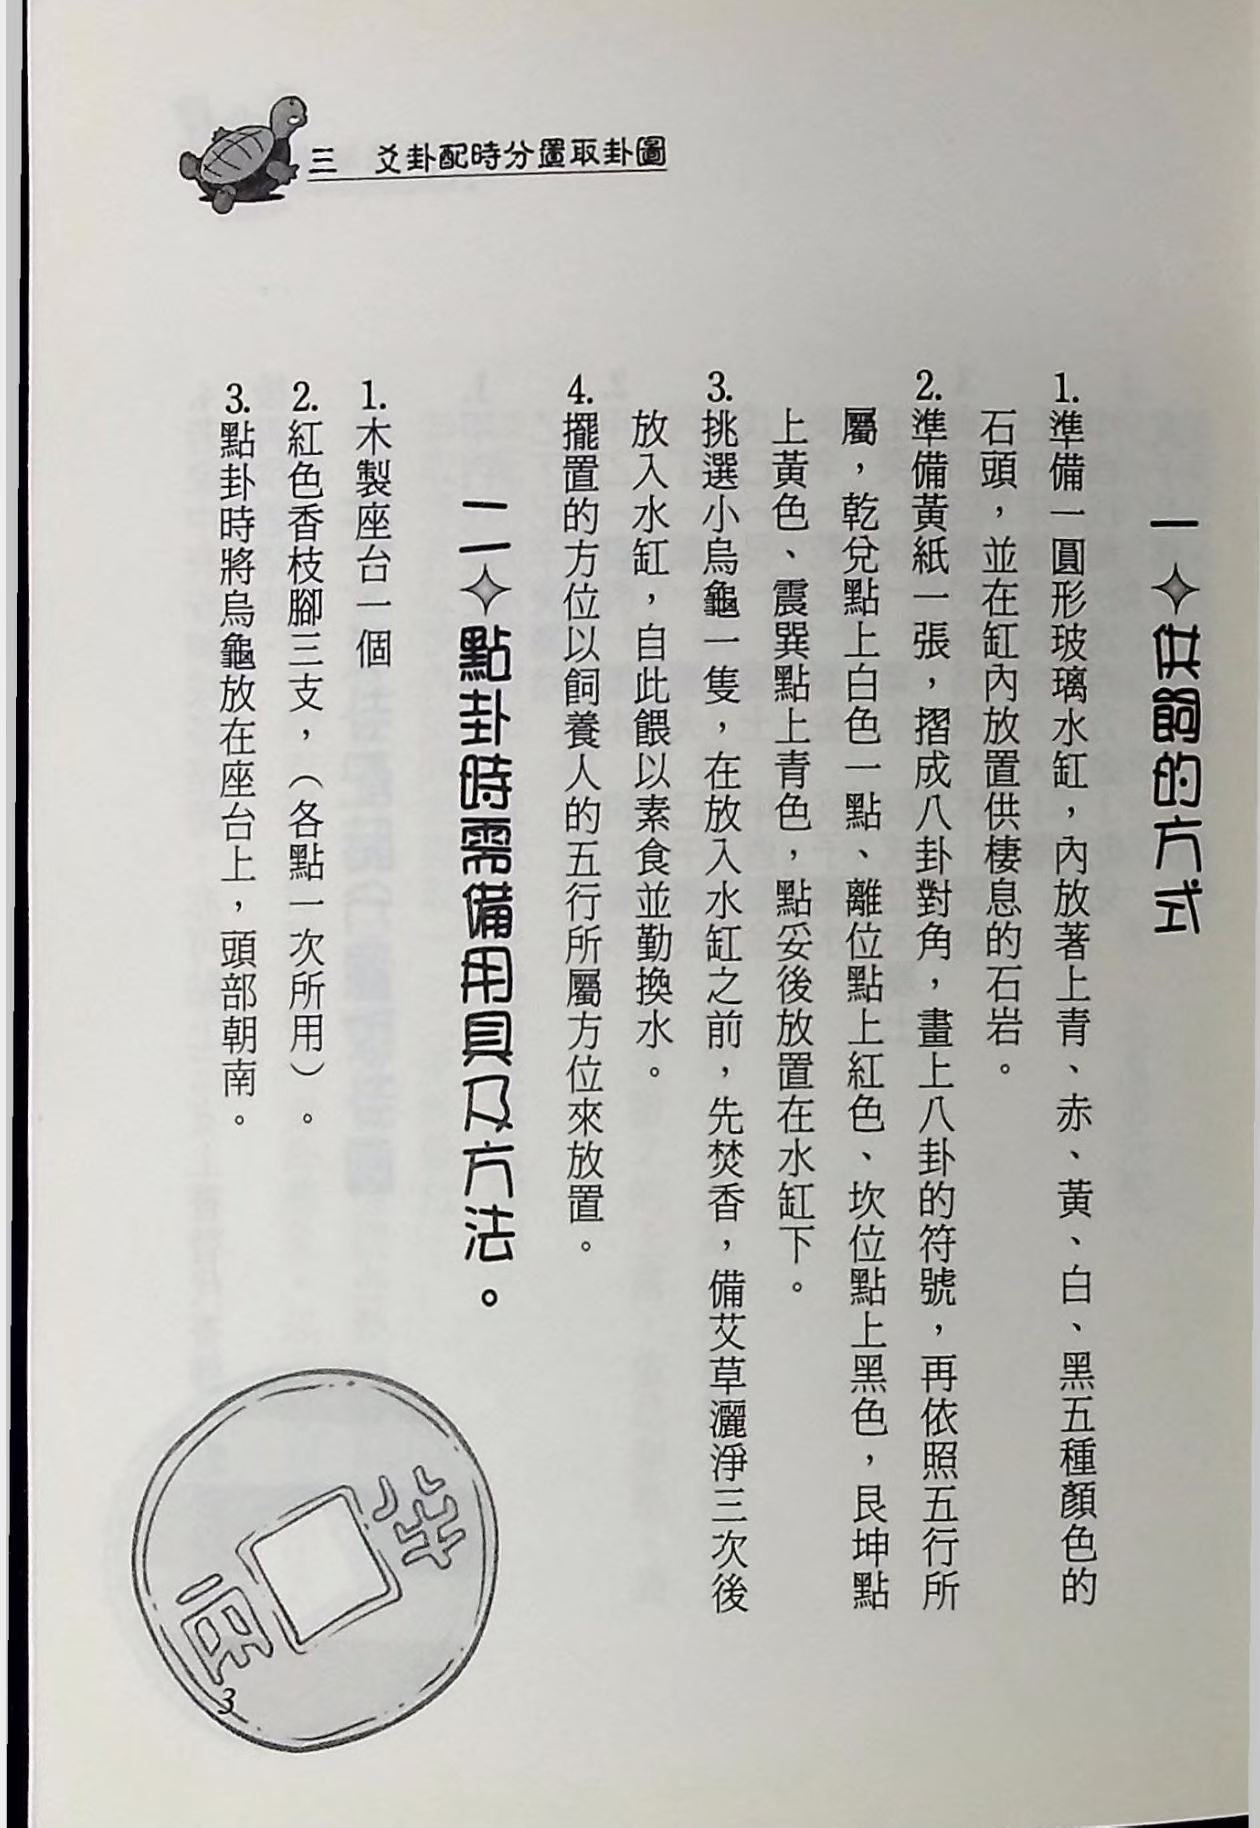 三　爻卦配時分置取卦圖
一✧供飼的方式
1.準備一圓形玻璃水缸，內放著上青、赤、黃、白、黑五種顏色的
石頭，並在缸內放置供棲息的石岩。
2.準備黃紙一張，摺成八卦對角，畫上八卦的符號，再依照五行所
屬，乾兌點上白色一點、離位點上紅色、坎位點上黑色，艮坤點
上黃色、震巽點上青色，點妥後放置在水缸下。
3.挑選小烏龜一隻，在放入水缸之前，先焚香，備艾草灑淨三次後
放入水缸，自此餵以素食並勤換水。
4.擺置的方位以飼養人的五行所屬方位來放置。
二✧點卦時需備用具及方法。
1.木製座台一個
2.紅色香枝腳三支，（各點一次所用）。
3.點卦時將烏龜放在座台上，頭部朝南。
3